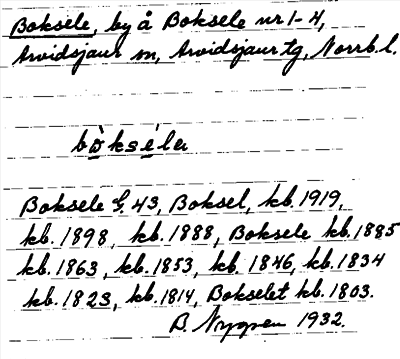 Boksele, by å Boksele nr 1-4,
Arvidsjaur sn, Arvidsjaur tg, Norrb. l.
bòkséla
Boksele G. 43, Boksel, kb. 1919,
kb. 1898, kb. 1888, Boksele kb. 1885
kb. 1863, kb. 1853, kb. 1846, kb. 1834
kb. 1823, kb. 1814, Bokselet kb. 1803.
B. Nygren 1932.